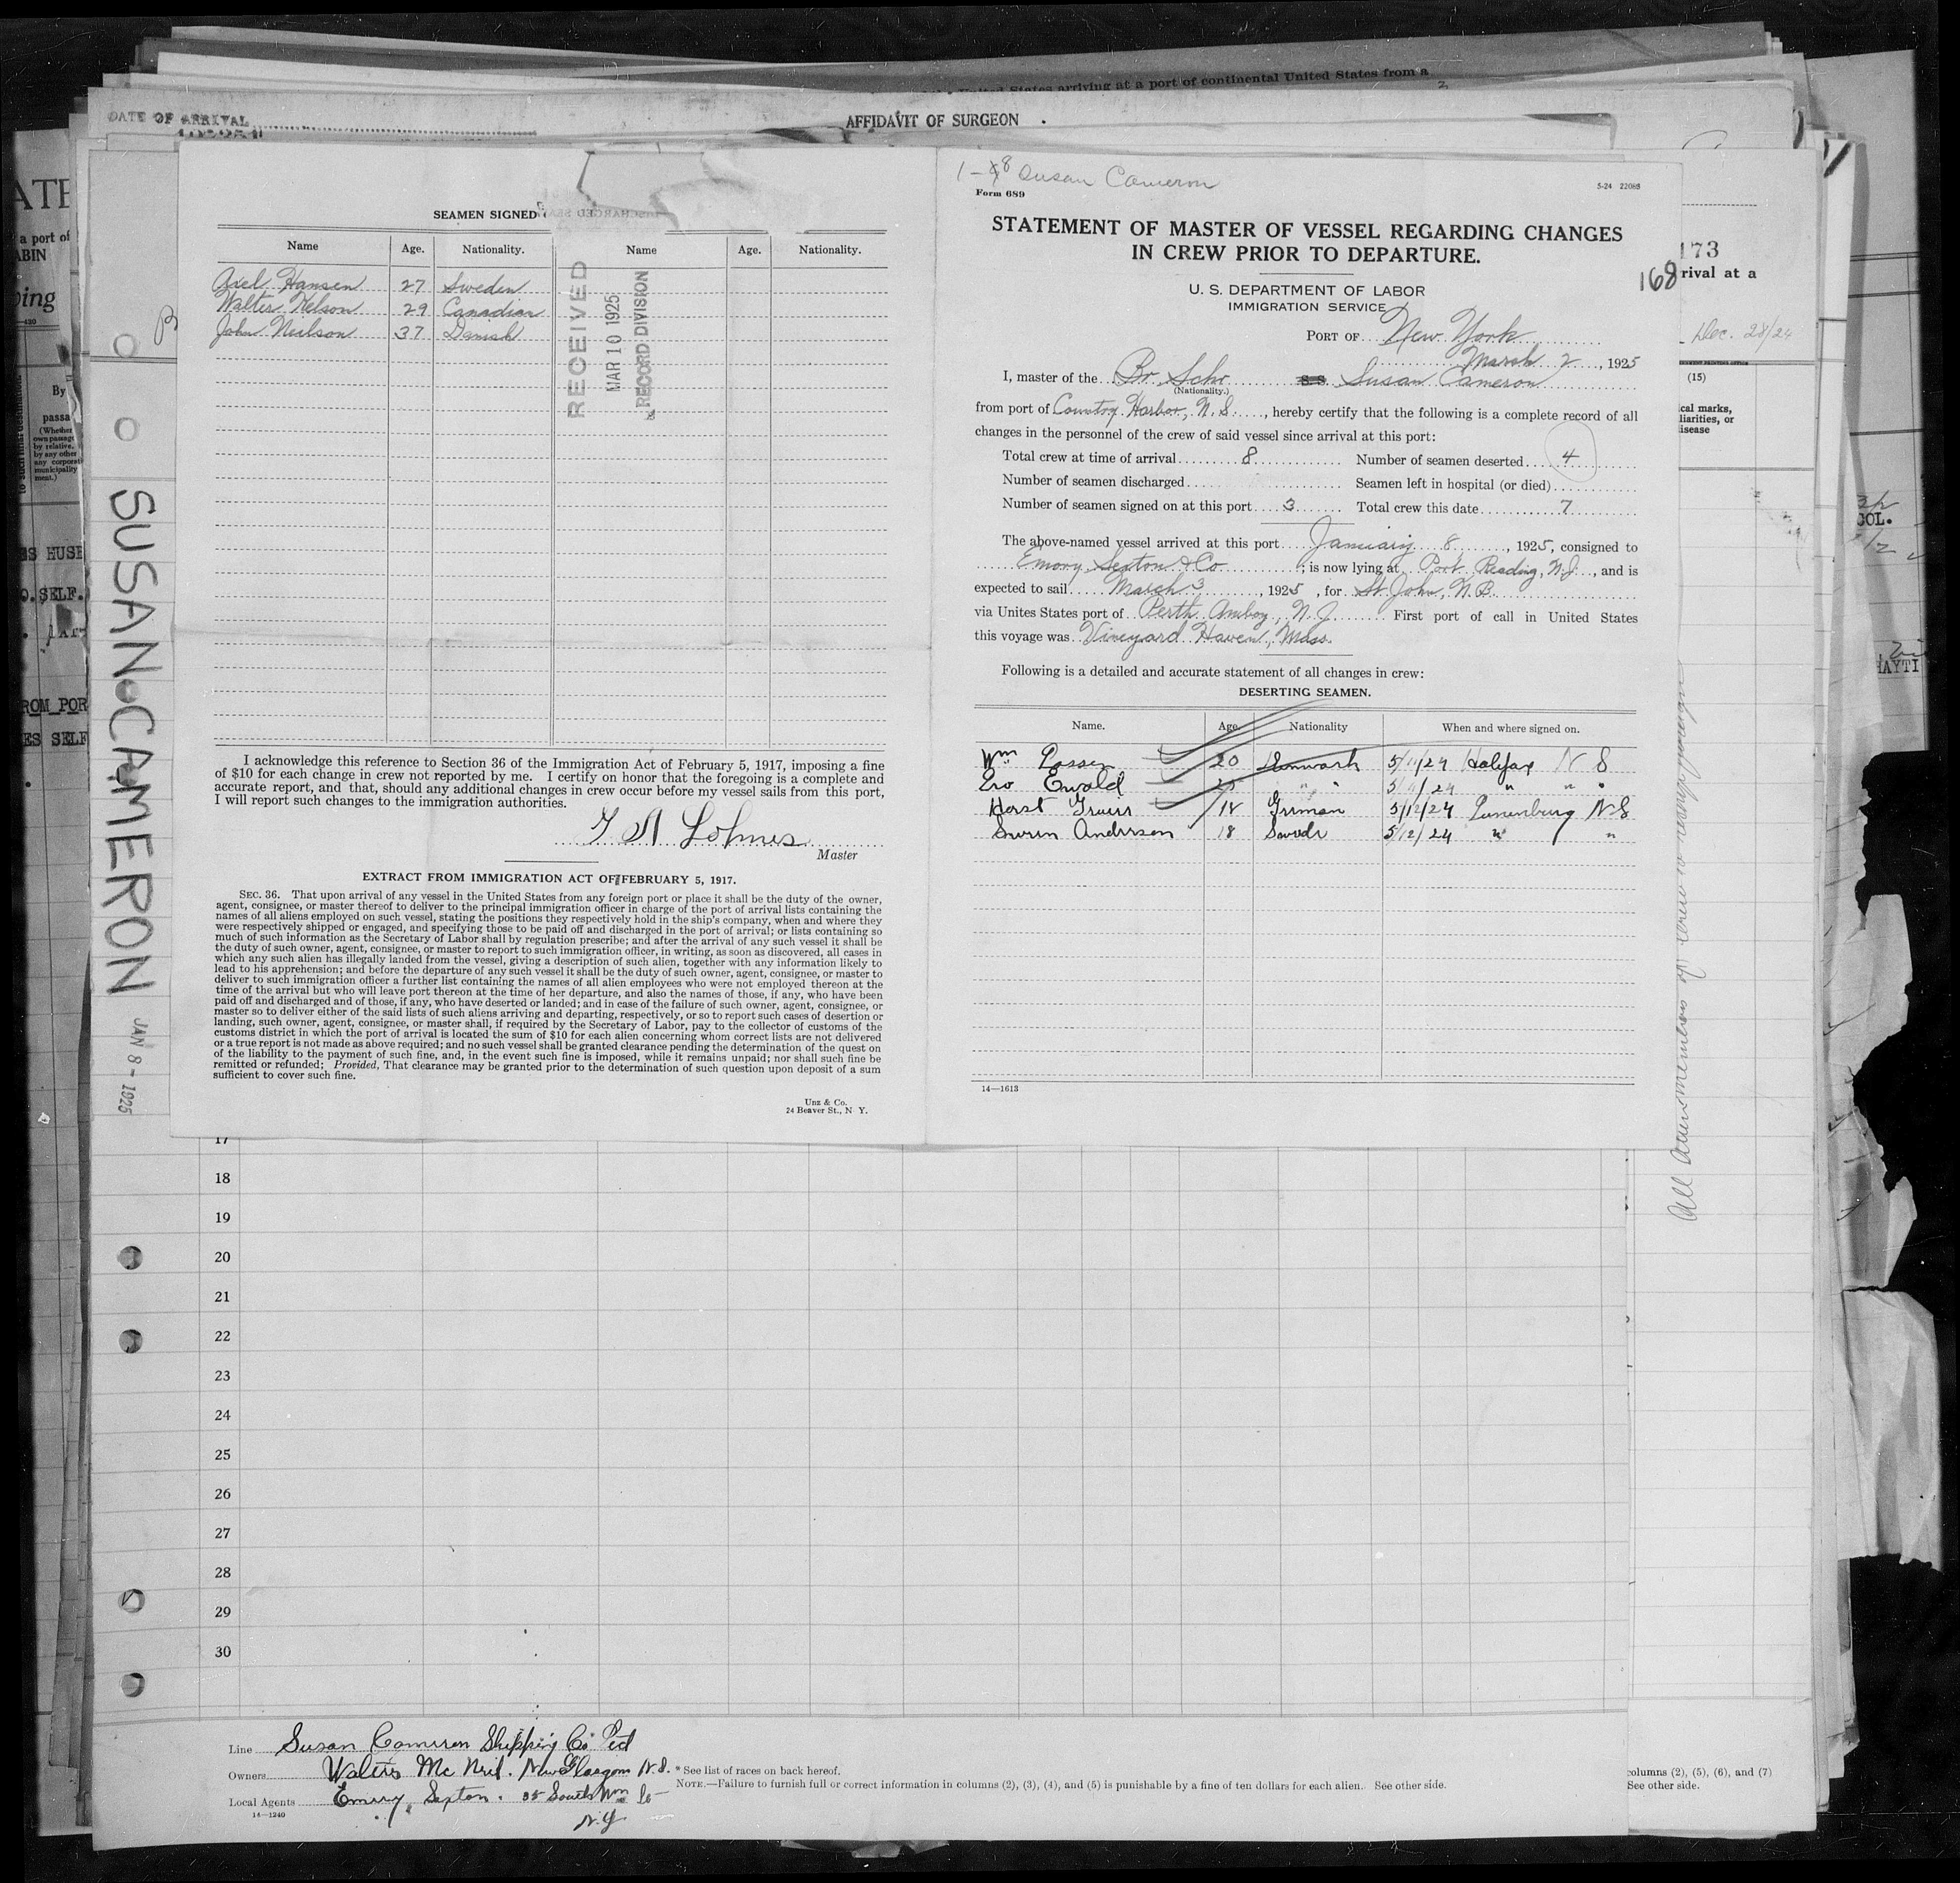 United States arriving at a port of continental United States from a
DATE OF ARRIVAL
AFFIDAVIT OF SURGEON
SEAMEN SIGNED
Name Age. Nationality. Name Age. Nationality.
Axel Hansen 27 Sweden
Walter Nelson 29 Canadian
John Neilson 37 Danish
RECEIVED
MAR 10 1925
RECORD DIVISION
I acknowledge this reference to Section 36 of the Immigration Act of February 5, 1917, imposing a fine
of $10 for each change in crew not reported by me. I certify on honor that the foregoing is a complete and
accurate report, and that, should any additional changes in crew occur before my vessel sails from this port,
I will report such changes to the immigration authorities.
Master
EXTRACT FROM IMMIGRATION ACT OF FEBRUARY 5, 1917.
SEC. 36. That upon arrival of any vessel in the United States from any foreign port or place it shall be the duty of the owner,
agent, consignee, or master thereof to deliver to the principal immigration officer in charge of the port of arrival lists containing the
names of all aliens employed on such vessel, stating the positions they respectively hold in the ship's company, when and where they
were respectively shipped or engaged, and specifying those to be paid off and discharged in the port of arrival; or lists containing so
much of such information as the Secretary of Labor shall by regulation prescribe; and after the arrival of any such vessel it shall be
the duty of such owner, agent, consignee, or master to report to such immigration officer, in writing, as soon as discovered, all cases in
which any such alien has illegally landed from the vessel, giving a description of such alien, together with any information likely to
lead to his apprehension; and before the departure of any such vessel it shall be the duty of such owner, agent, consignee, or master to
deliver to such immigration officer a further list containing the names of all alien employees who were not employed thereon at the
time of the arrival but who will leave port thereon at the time of her departure, and also the names of those, if any, who have been
paid off and discharged and of those, if any, who have deserted or landed; and in case of the failure of such owner, agent, consignee, or
master so to deliver either of the said lists of such aliens arriving and departing, respectively, or so to report such cases of desertion or
landing, such owner, agent, consignee, or master shall, if required by the Secretary of Labor, pay to the collector of customs of the
customs district in which the port of arrival is located the sum of $10 for each alien concerning whom correct lists are not delivered
or a true report is not made as above required; and no such vessel shall be granted clearance pending the determination of the quest on
of the liability to the payment of such fine, and, in the event such fine is imposed, while it remains unpaid; nor shall such fine be
remitted or refunded; Provided, That clearance may be granted prior to the determination of such question upon deposit of a sum
sufficient to cover such fine.
Unz & Co.
24 Beaver St., N Y.
1-8 Susan Cameron
Form 689
5-24 22088
STATEMENT OF MASTER OF VESSEL REGARDING CHANGES
IN CREW PRIOR TO DEPARTURE.
U. S. DEPARTMENT OF LABOR
IMMIGRATION SERVICE
PORT OF New York
March 2, 1925
I, master of the Br. Schr S S Susan Cameron
(Nationality.)
from port of Country Harbor, N.S., hereby certify that the following is a complete record of all
changes in the personnel of the crew of said vessel since arrival at this port:
Total crew at time of arrival 8 Number of seamen deserted 4
Number of seamen discharged Seamen left in hospital (or died)
Number of seamen signed on at this port 3 Total crew this date 7
The above-named vessel arrived at this port January 8, 1925, consigned to
Emory Sexton & Co; is now lying at Port Reading, N.J., and is
expected to sail March 3, 1925, for St. John, N.B.
via Unites States port of Perth Amboy, N.J. First port of call in United States
this voyage was Vineyard Haven, Mass.
Following is a detailed and accurate statement of all changes in crew:
DESERTING SEAMEN.
Name. Age. Nationality When and where signed on.
Wm 20 Denmark 5/11/24 Halifax N S
Ewald " " 5/11/24 " " "
Horst 18 German 5/12/24 Lunenburg N S
Anderson 18 5/12/24 " "
14—1613
168
173
rival at a
Dec. 28/24
(15)
cal marks,
liarities, or
isease
SUSAN CAMERON
JAN 8 - 1925
a port of
By
passa
(Whether
own passage
by relative,
by any other
any corporat
municipality
ment.)
SELF.
ROM POR
ES SELF
COL.
HAYTI
17
18
19
20
21
22
23
24
25
26
27
28
29
30
Line Susan Cameron Shipping Co Ltd
Owners Walter McNeil. New Glasgow N.S.
Local Agents Emery Sexton. 35 South Wm St
N.Y
14—1240
* See list of races on back hereof.
NOTE.—Failure to furnish full or correct information in columns (2), (3), (4), and (5) is punishable by a fine of ten dollars for each alien. See other side.
columns (2), (5), (6), and (7)
See other side.